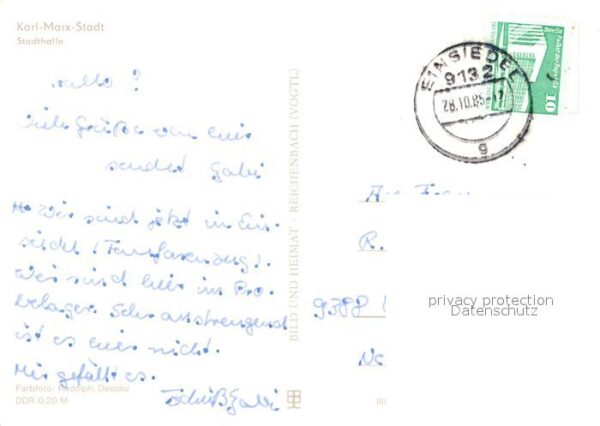 Karl-Marx-Stadt
Stadthalle
Hallo!
viele Grüße von hier
sendet Gabi
Wir sind jetzt in Ein-
siedel (Fanfarenzug).
Wir sind hier im Pro-
belager. Sehr anstrengend
ist es hier nicht.
Mir gefällt es.
Tschüß Gabi
Farbfoto: Rudolph, Dessau
DDR 0,20 M
BILD UND HEIMAT · REICHENBACH (VOGTL)
EINSIEDEL
9132
28.10.85-17
g
Berlin
10
R.
9388
privacy protection
Datenschutz